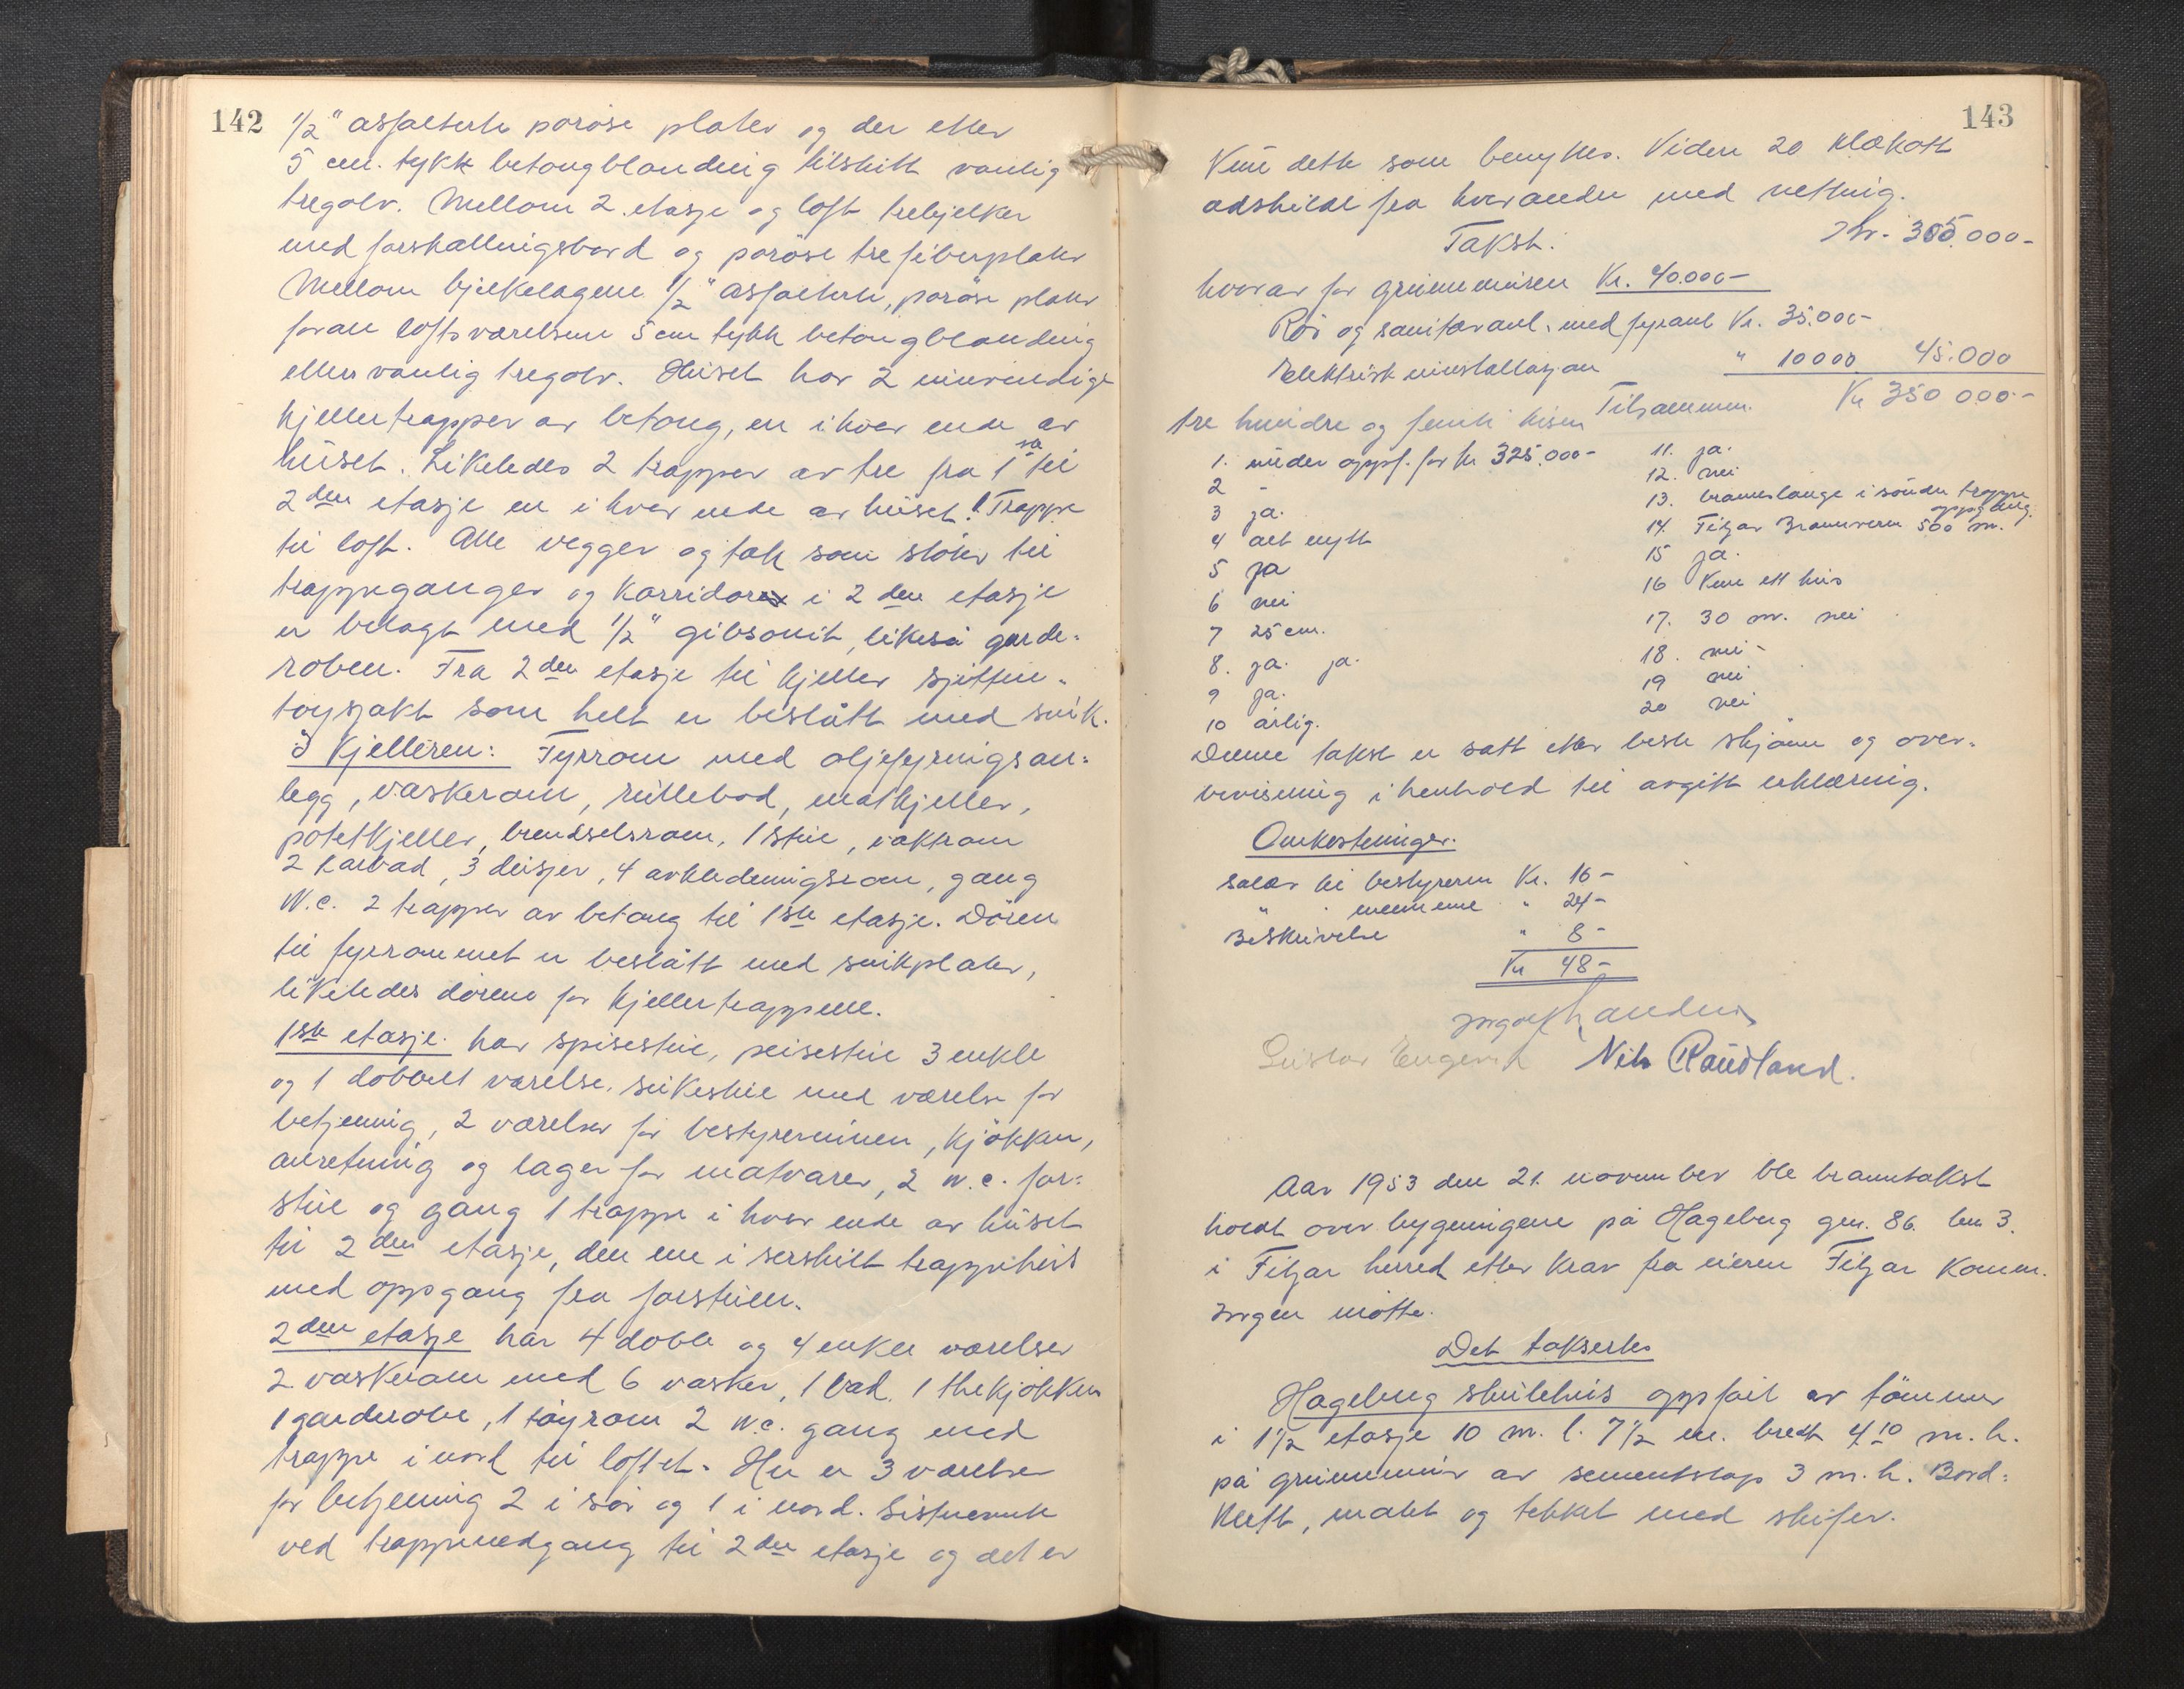 142
1/2" asfalterte porøse plater og der etter
5 cm. tykk betongblanding tilslutt vanlig
tregolv. Mellom 2. etasje og loft trebjelker
med forskallingsbord og porøse trefiberplater
Mellom bjelkelagene 1/2" asfalterte, porøse plater
foran loftsværelsene 5 cm tykk betongblanding
ellers vanlig tregolv. Huset har 2 innvendige
kjellertrapper av betong, en i hver ende av
huset. Likeledes 2 trapper av tre fra 1ste til
2den etasje en i hver ende av huset. 1 Trappe
til loft. Alle vegger og tak som støter til
trappeganger og korridorer i 2den etasje
er belagt med 1/2" gibsonit, likeså garde-
roben. Fra 2den etasje til kjeller
tøysjakt som helt er beslått med sink.
I Kjelleren: Fyrrom med oljefyringsan-
legg, vaskerom, rullebod, matkjeller,
potetkjeller, brendselsrom, 1 stue, vaktrom
2 karbad, 3 dusjer, 4 avkledningsrom, gang
W.C. 2 trapper av betong til 1ste etasje. Døren
til fyrrommet er beslått med sinkplater,
likeledes dørene for kjellertrappene.
1ste etasje. har spisestue, peisestue 3 enkle
og 1 dobbelt værelse. sukestue med værelse for
betjening, 2 værelser for bestyrerinnen, kjøkken,
anretning og lager for matvarer, 2 w.c. for-
stue og gang 1 trappe i hver ende av huset
til 2den etasje, den ene i serskilt trappehus
med oppgang fra forstuen.
2den etasje har 4 doble og 4 enkle værelser
2 vaskerom med 6 vasker, 1 bad. 1 thekjøkken
1 garderobe, 1 tøyrom 2 w.c. gang med
trappe i nord til loftet. Her er 3 værelser
for betjening 2 i sør og 1 i nord.
ved trappenedgang til 2den etasje og det er
143
Kun dette som benyttes. Videre 20 klekott
adskildt fra hverandre med netting.
Takst. Kr. 305.000-
hvorav for grunnmuren Kr. 40.000-
Rør og sanitæranl. med fyranl Kr. 35.000-
Elektrisk installasjon " 10000 45.000
tre hundre og femti tusen Tilsammen. Kr 350 000.-
1. under oppf. for kr 325.000-
2 -
3 ja.
4 alt nytt
5 ja
6 nei
7 25 cm.
8. ja. ja.
9 ja.
10 årlig.
11. ja.
12. nei
13. brannslange i søndre trappe
oppgang.
14. Fitjar Brannvern 500 m.
15 ja.
16 Kun ett hus
17. 30 m. nei
18. nei-
19 nei
20 nei
Denne takst er satt etter beste skjønn og over-
bevisning i henhold til avgitt erklæring.
Omkostninger.
Salær til bestyreren Kr. 16-
" " mennene " 24-
Beskrivelse " 8-
Kr 48-
Nils Raudland.
Aar 1953 den 21. november ble branntakst
holdt over bygningene på Hageberg gnr. 86. bnr 3.
i Fitjar herred etter krav fra eieren Fitjar Komm.
Ingen møtte.
Det taksertes
Hageberg skulehus oppført av tømmer
i 1 1/2 etasje 10 m. l. 7 1/2 m. bredt 4,10 m. h.
på grunnmur av sementstøp 3 m. h. Bord-
kledt, malt og tekket med skifer.